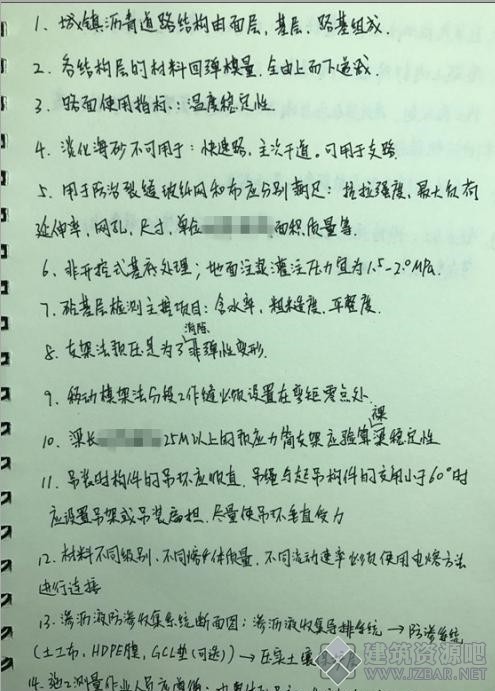 1、城镇沥青道路结构由面层，基层，路基组成.
2、各结构层的材料回弹模量，全由上而下递减
3、路面使用指标：温度稳定性
4、淡化海砂不可用于：快速路，主次干道。可用于支路
5、用于防治裂缝玻纤网和布应分别满足：抗拉强度，最大负荷
延伸率，网孔，尺寸，单位 面积质量等
6、非开挖式基底处理；地面注浆灌注压力宜为1.5-2.0MPa.
7、砼基层检测主要项目：含水率，粗糙度，平整度.
8、支架法预压是为了消除非弹性变形.
9、移动模架法分段工作缝必须设置在弯矩零点处
10、梁长 25M以上的预应力简支梁应验算裸梁稳定性
11、吊装时构件的吊环应顺直，吊绳与起吊构件的交角小于60°时
应设置吊架或吊装扁担，尽量使吊环垂直受力
12、材料不同级别、不同熔体质量，不同流动速率必须使用电熔方法
进行连接
13、渗沥液防渗收集系统断面图：渗沥液收集导排系统 → 防渗系统
(土工布、HDPE膜，GCL垫(可选)) → 压实土壤
14、施工测量作业人员应遵循：
建筑资源吧
WWW.JZBAR.NET